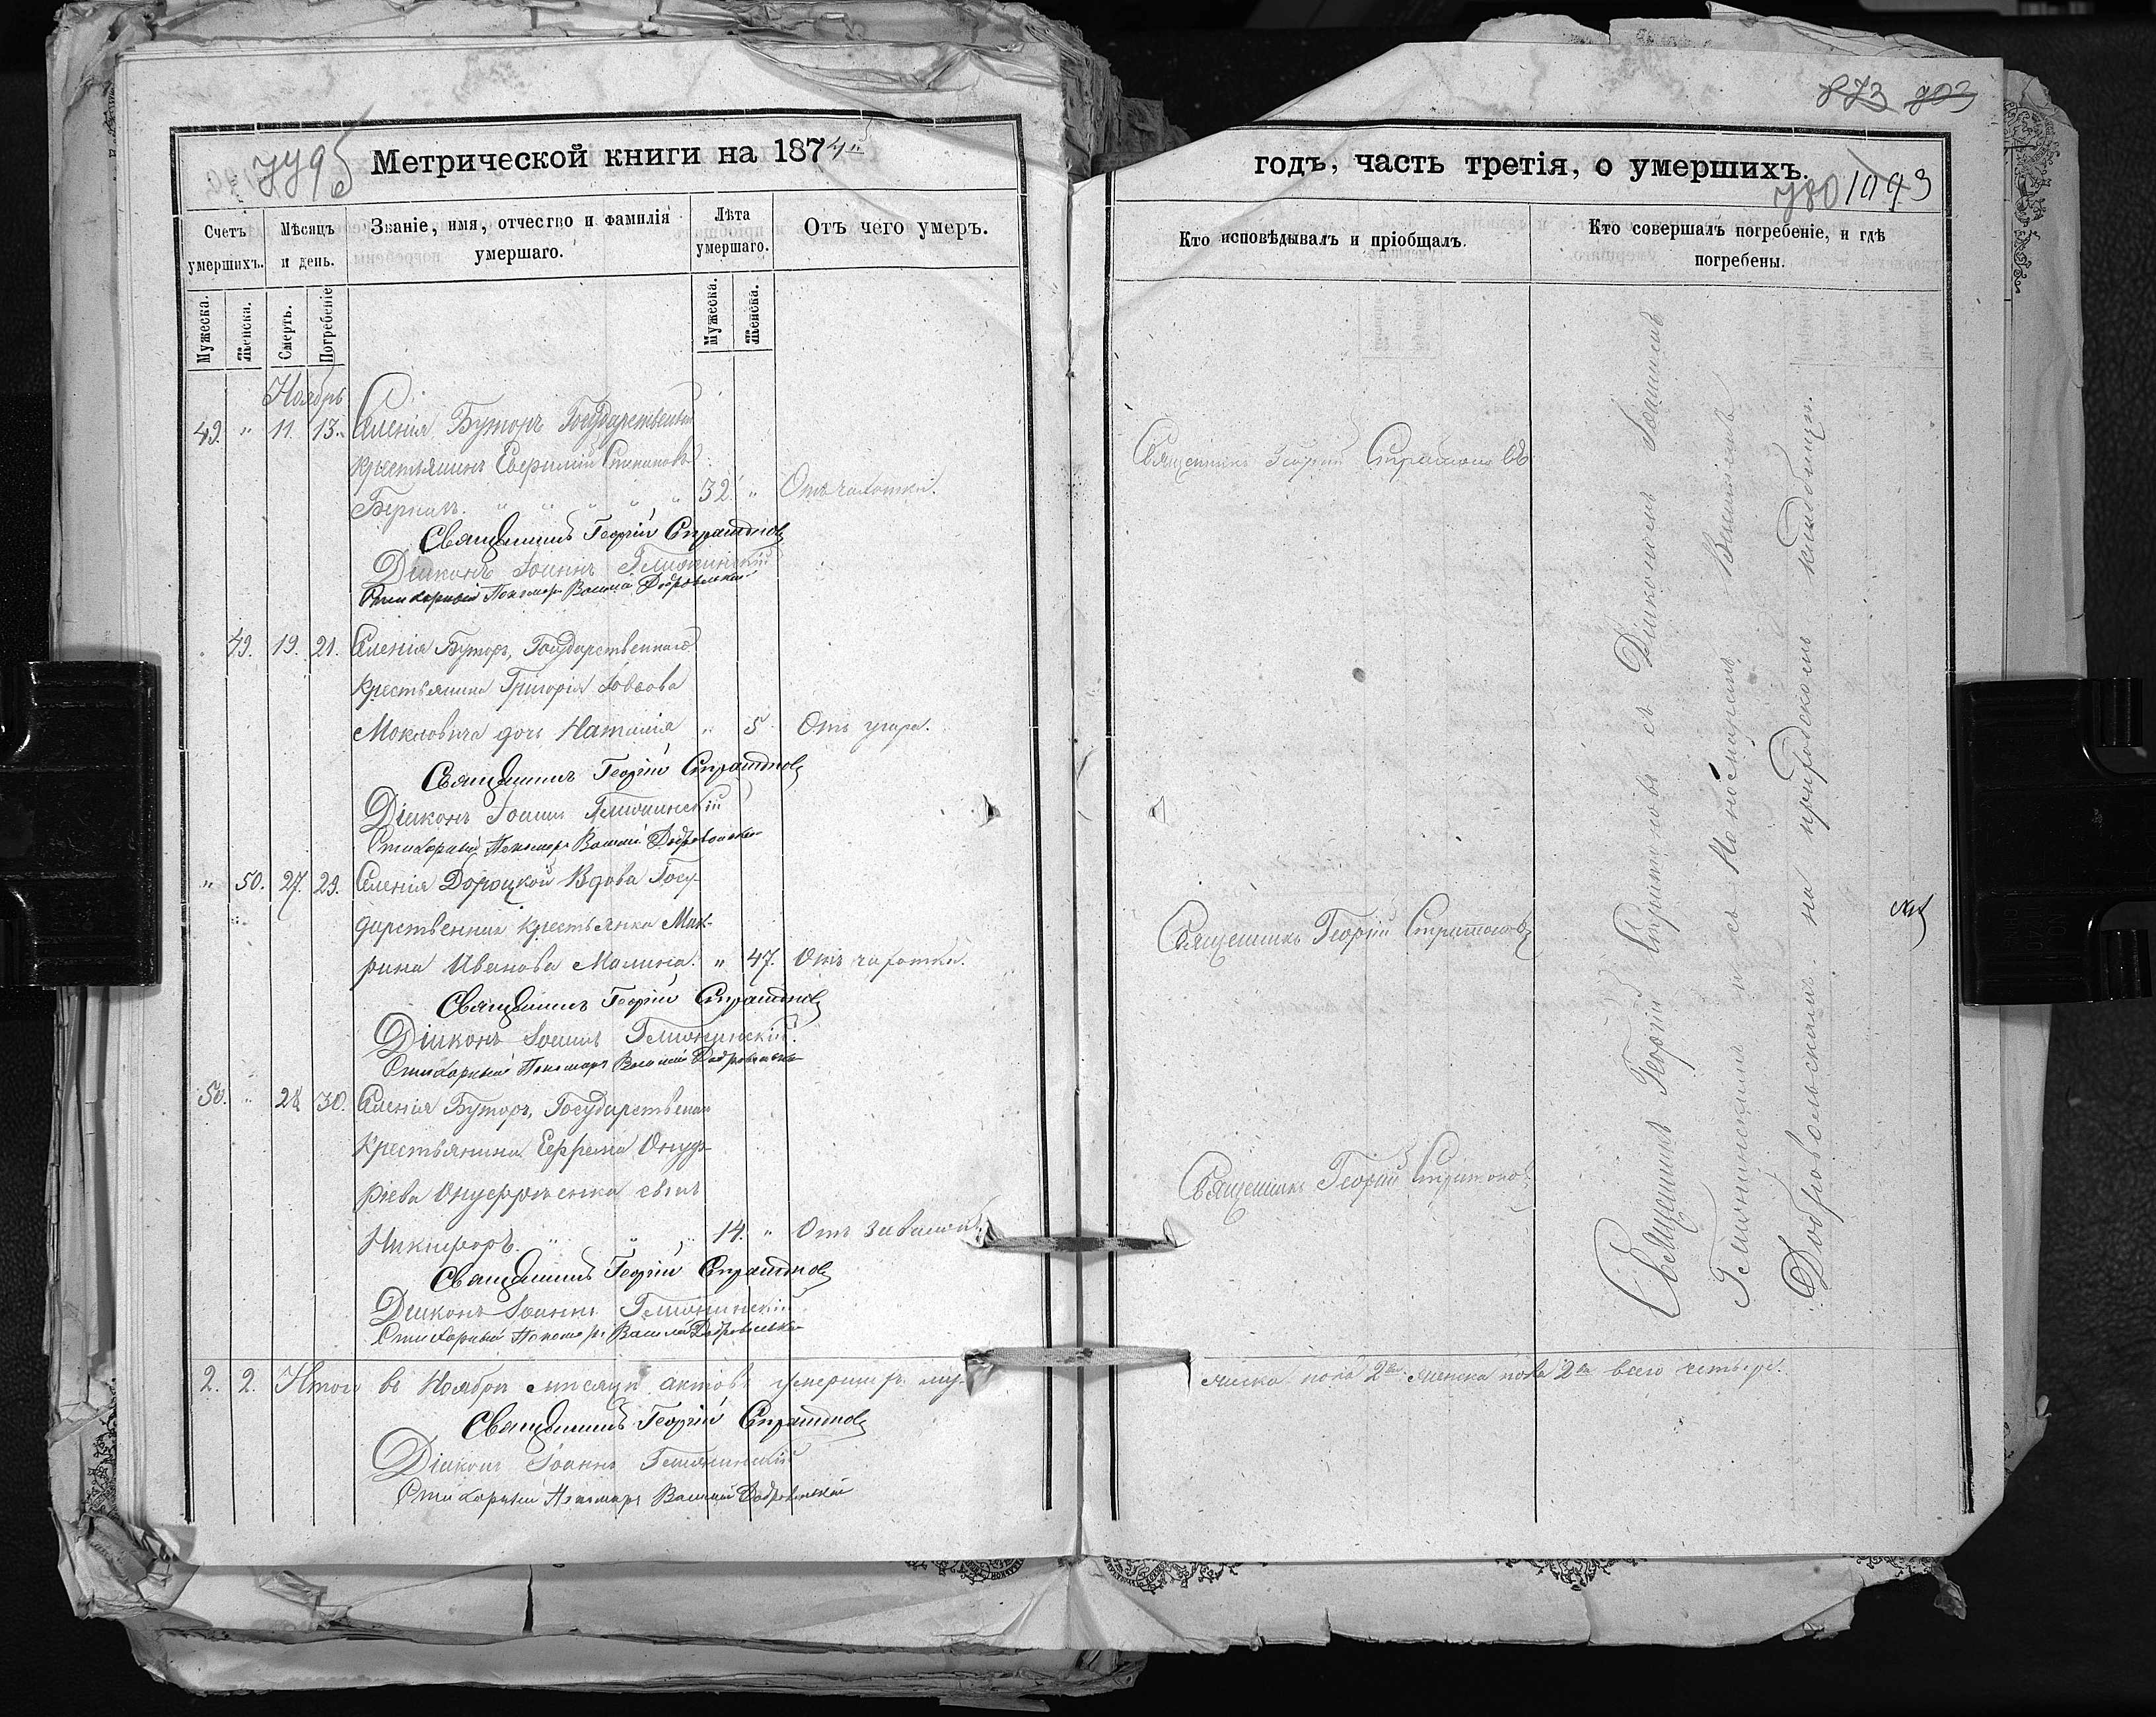 873 903
779б
Метрической книги на 1874й
годъ, часть третія, о умершихъ.
780 1093
Счетъ умершихъ.
Мѣсяцъ и день.
Званіе, имя, отчество и фамилія умершаго.
Лѣта умершаго.
Отъ чего умеръ.
Кто исповѣдывалъ и пріобщалъ.
Кто совершалъ погребеніе, и гдѣ погребены.
Мужеска.
Женска.
Смерть.
Погребеніе
Мужеска.
Женска.
Ноябрь
49. " 11. 13. Селенія Буторъ Государственный
крестьянинъ
32. " Отъ чахотки.
Священникъ Георгій Стратоновъ
Священникъ Георгій Стратоновъ
Діаконъ Іоаннъ
Стихарный Пономарь Василій Добровольскій
" 49. 19. 21. Селенія Буторъ, Государственнаго
крестьянина Григорія Іовова
дочь Наталія " 5 Отъ угара.
Священникъ Георгій Стратоновъ
Діаконъ Іоаннъ
Стихарный Пономарь Василій Добровольскій
" 50. 27. 29. Селенія Дороцкой Вдова Госу-
дарственная крестьянка Мак-
рина Иванова Малина. " 47. Отъ чахотки.
Священникъ Георгій Стратоновъ
Священникъ Георгій Стратоновъ
Діаконъ Іоаннъ
Стихарный Пономарь Василій Добровольскій
50. " 28 30. Селенія Буторъ, Государственнаго
Крестьянина Ефрема Онуф-
ріева Онуфріенка сынъ
Никифоръ. " " " 14. " Отъ
Священникъ Георгій Стратоновъ
Священникъ Георгій Стратоновъ
Діаконъ Іоаннъ
Стихарный Пономарь Василій Добровольскій
Священникъ Георгій Стратоновъ съ Діакономъ Іоанномъ
и съ Пономаремъ Василіемъ
Добровольскимъ на приходскомъ кладбищѣ.
2. 2. Итого въ Ноябрѣ мѣсяцѣ актовъ умершихъ му-
жеска пола 2ва, женска пола 2ва всего четыре.
Священникъ Георгій Стратоновъ
Діаконъ Іоаннъ
Стихарный Пономарь Василій Добровольскій